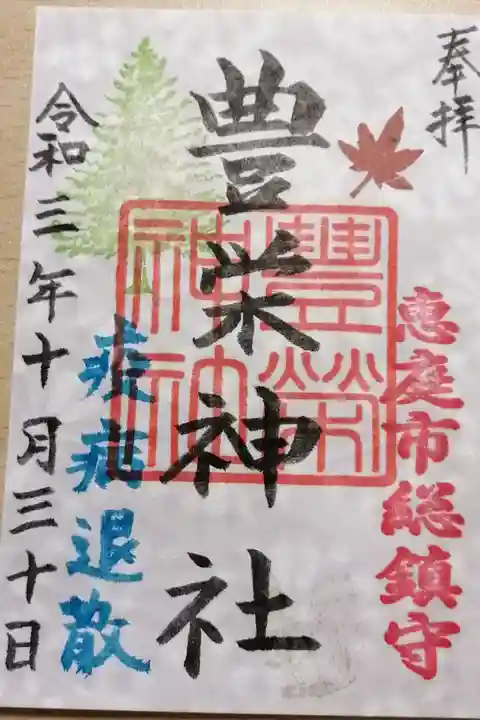 奉拝
恵庭市総鎮守
豊栄神社
豊榮神社
疫病退散
令和三年十月三十日